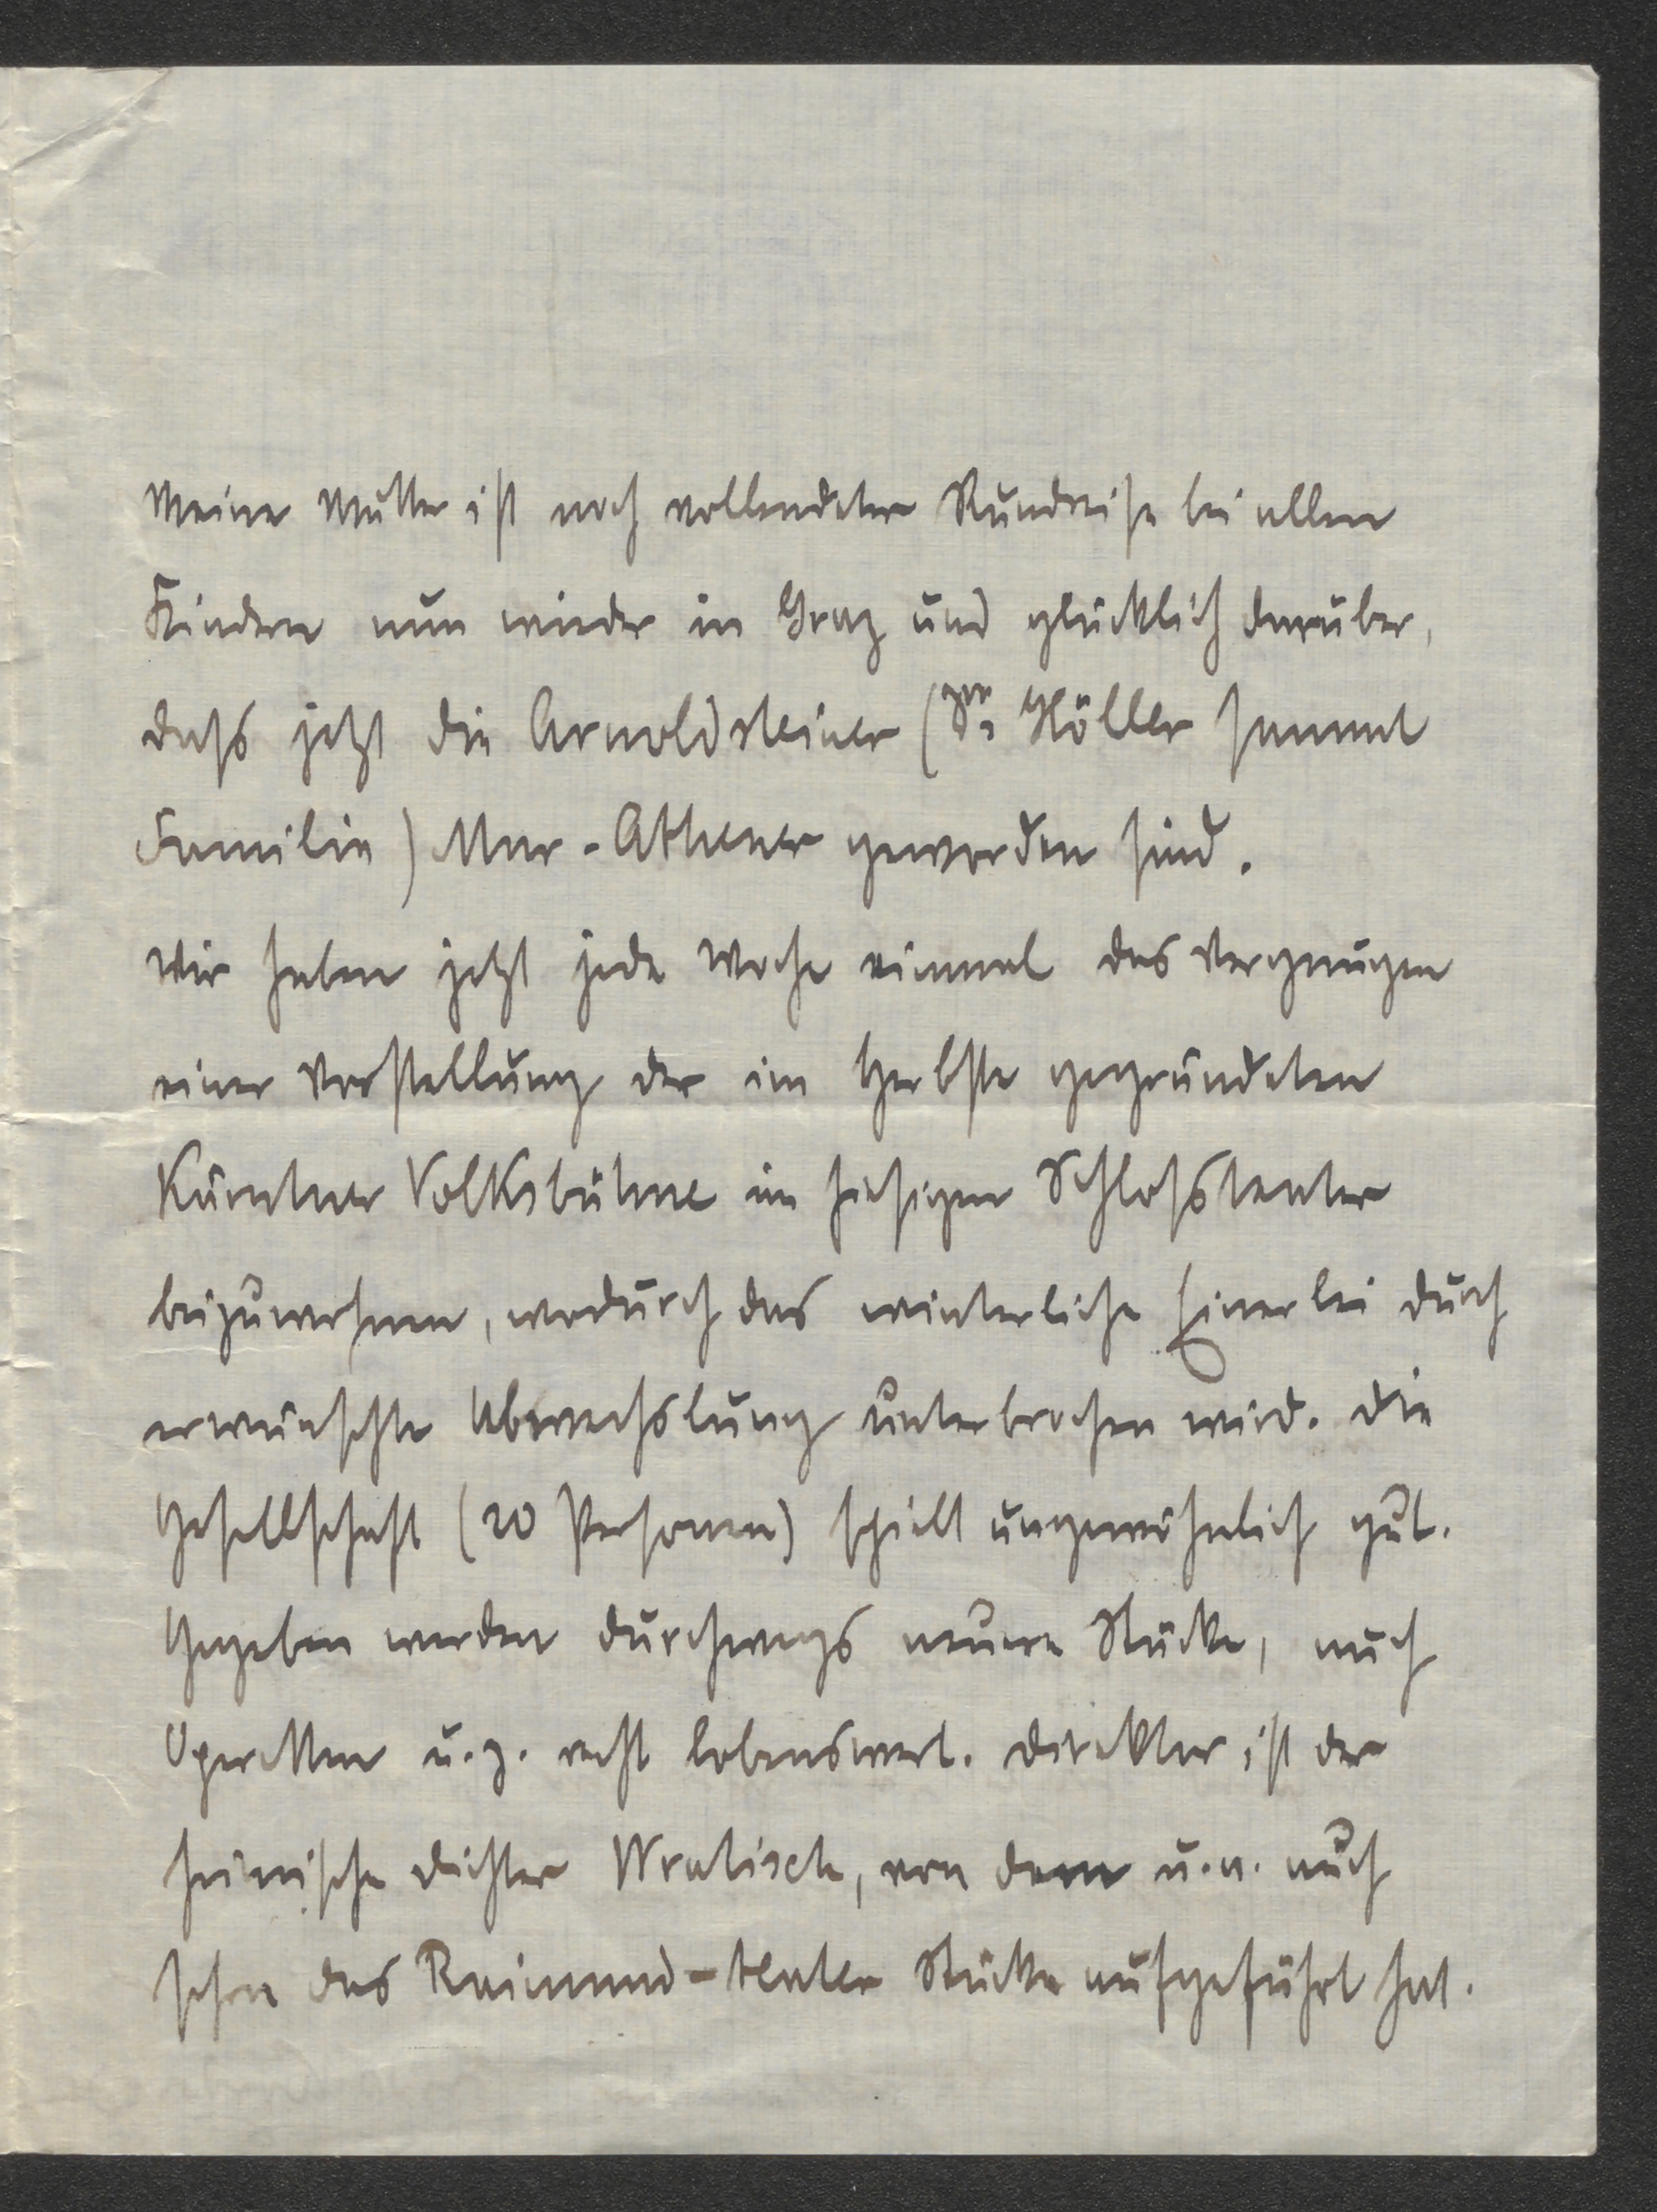 Meine Mutter ist nach vollendeter Rundreise bei allen
Kindern nun wieder in Graz und glücklich darüber,
dass jetzt die Arnoldsteiner (Dr. Höller sammt
Familie) Mur-Athener geworden sind.
Wir haben jetzt jede Woche einmal das Vergnügen
einer Vorstellung der im Herbste gegründeten
Kärntner Volksbühne im hiesigen Schlossteater
beizuwohnen, wodurch das winterliche Einerlei durch
erwünschte Abwechslung unterbrochen wird. Die
Gesellschaft (20 Personen) spielt ungewöhnlich gut.
Gegeben werden durchwegs neuere Stücke, auch
Operetten u. z. recht lobenswert. Direktor ist der
heimische Dichter Wratisch, von dem u. a. auch
schon das Raimund-teater Stücke aufgeführt hat.